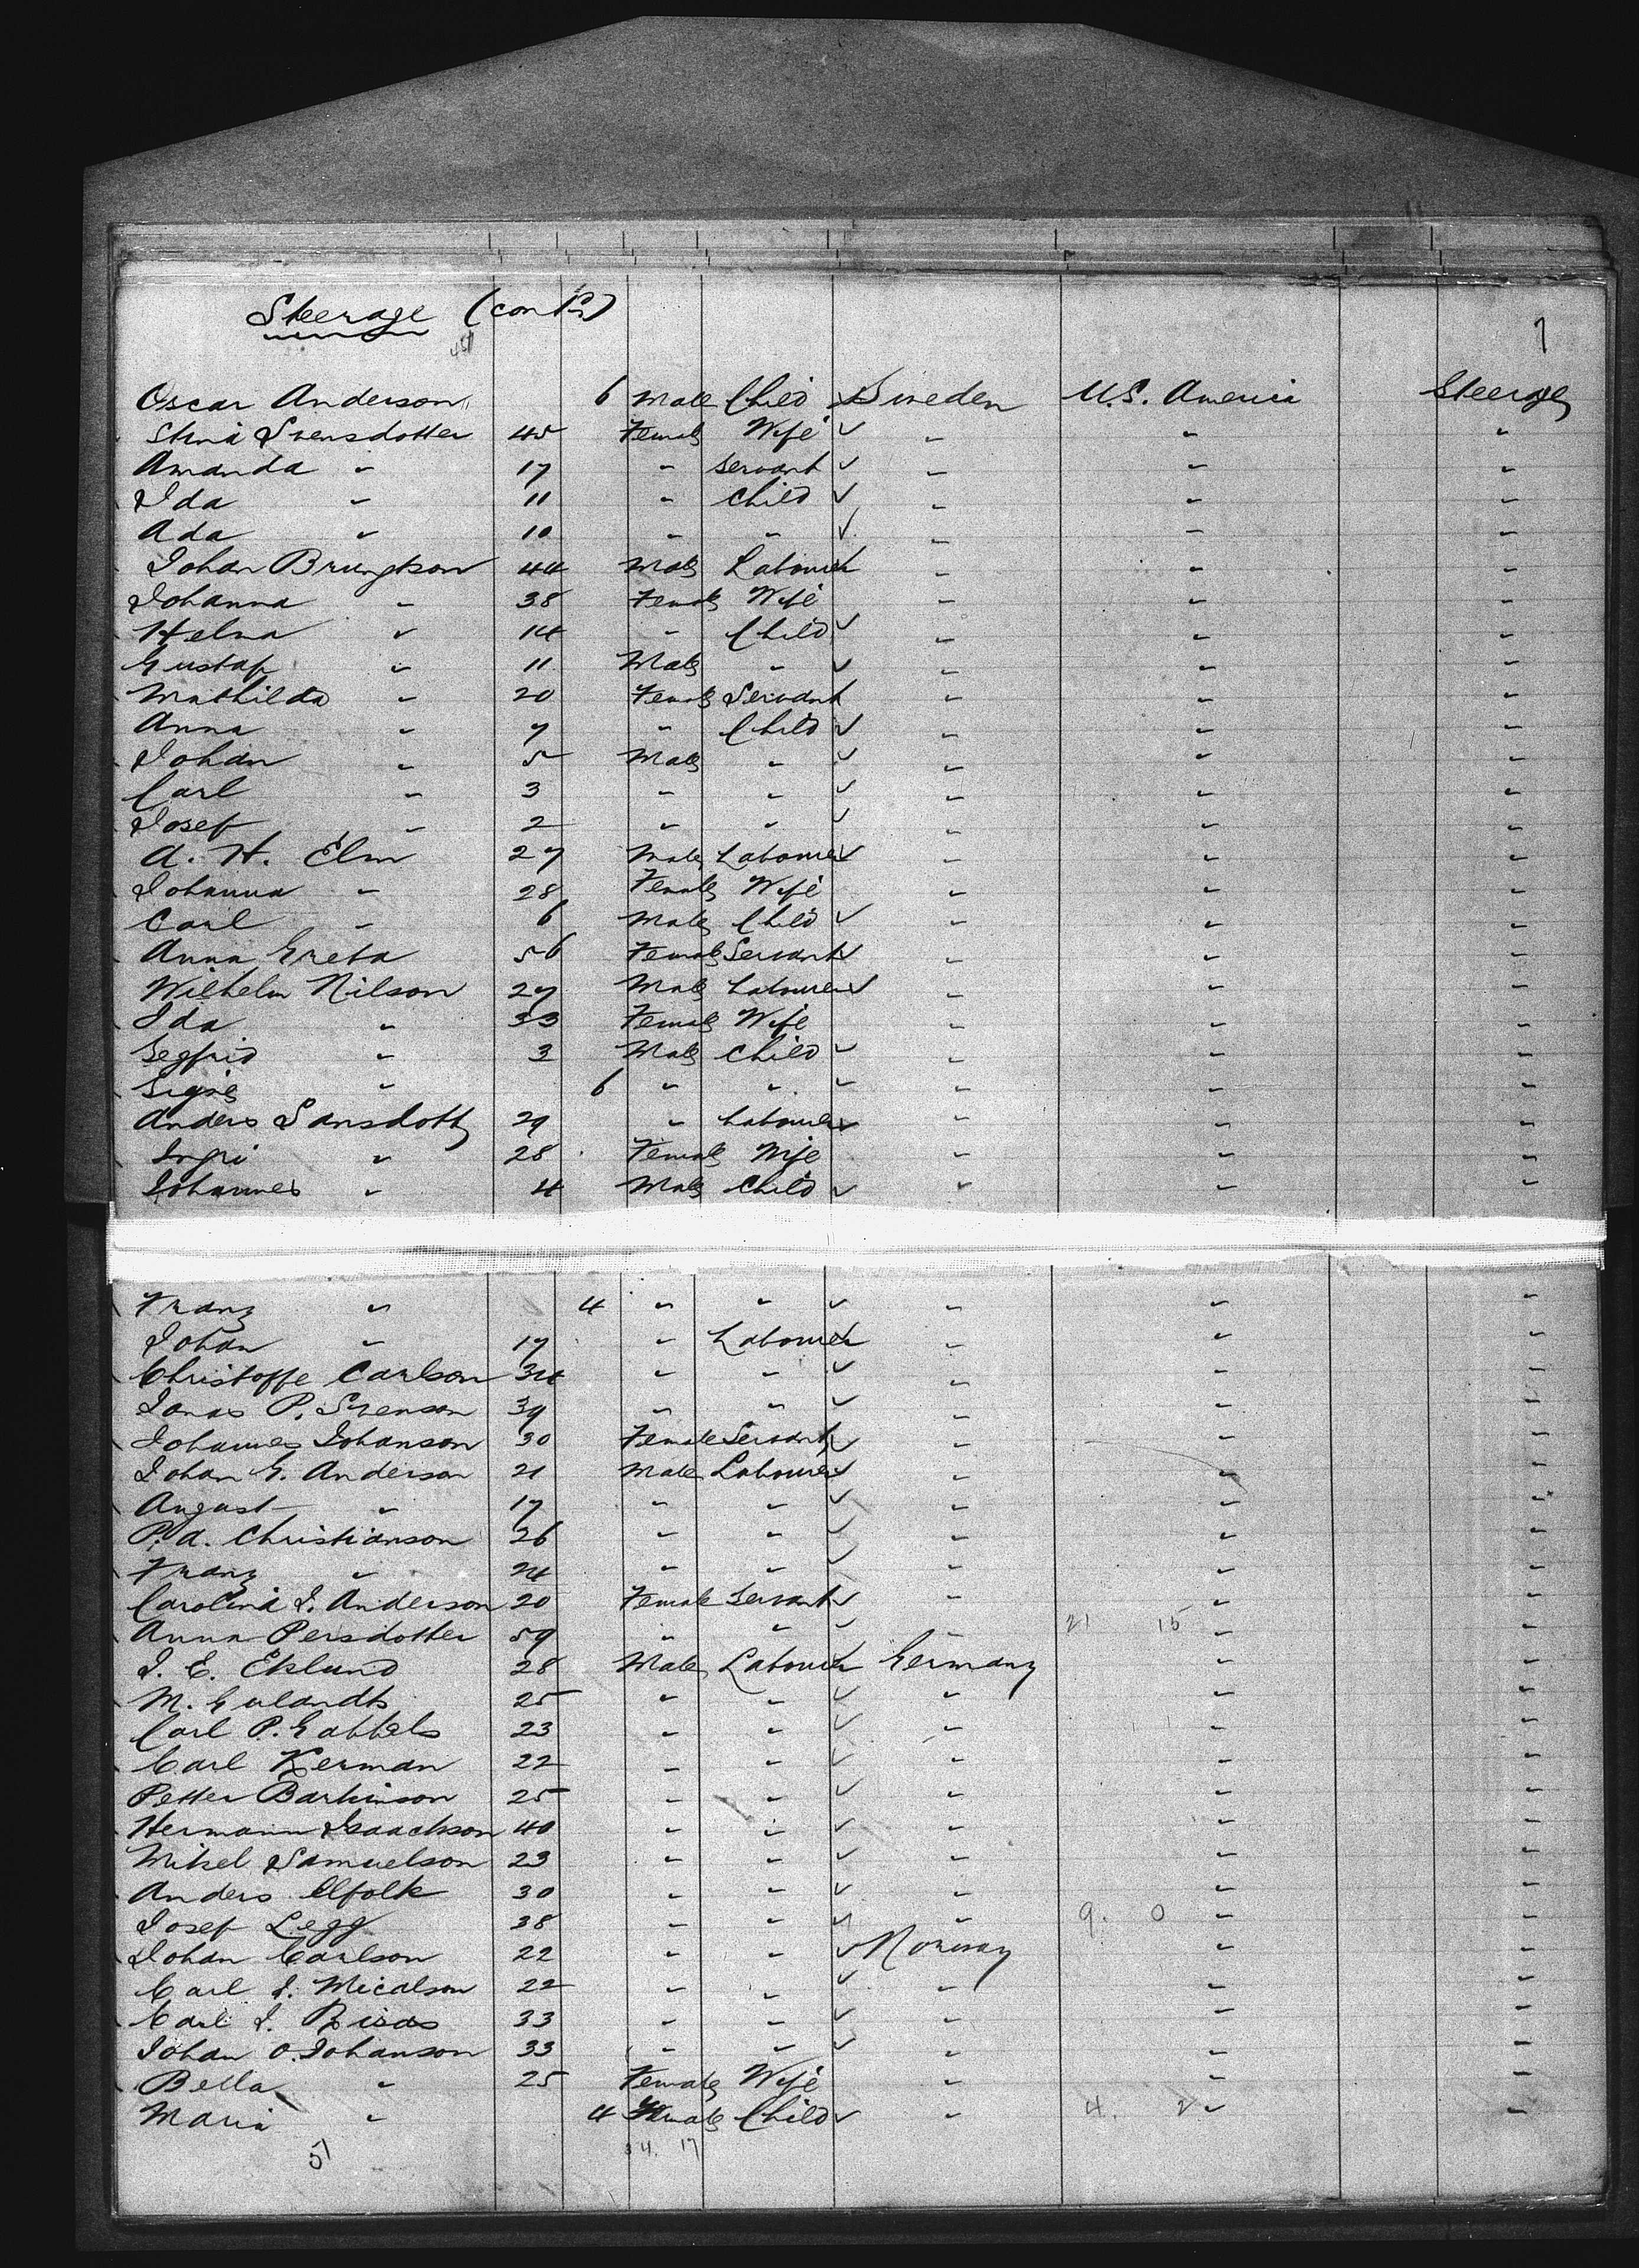 Steerage (cont'd)
7
Oscar Anderson 6 Male Child Sweden U.S. America Steerage
Stina Svensdotter 45 Female Wife ✓ " " "
Amanda " 17 " Servant ✓ " " "
Ida " 11 " Child ✓ " " "
Ada " 10 " " ✓ " " "
Johan Brungtson 44 Male Labourer " " "
Johanna " 38 Female Wife " " "
Helma " 14 " Child ✓ " " "
Gustaf " 11 Male " ✓ " " "
Mathilda " 20 Female Servant " " "
Anna " 7 " Child ✓ " " "
Johan " 5 Male " ✓ " " "
Carl " 3 " " ✓ " " "
Josef " 2 " " ✓ " " "
A. H. Elm 27 Male Labourer ✓ " " "
Johanna " 28 Female Wife " " "
Carl " 6 Male Child ✓ " " "
Anna Greta 56 Female Servant ✓ " " "
Wilhelm Nilson 27 Male Labourer ✓ " " "
Ida " 33 Female Wife " " "
Segfrid " 3 Male Child ✓ " " "
" 6 " " ✓ " " "
Anders Lansdott 29 " Labourer ✓ " " "
Ingri " 28 Female Wife " " "
Johannes " 4 Male Child ✓ " " "
Franz " 4 " " ✓ " " "
Johan " 17 " Labourer " " "
Christoffe Carlson 34 " " ✓ " " "
Jonas P. Svenson 39 " " ✓ " " "
Johannes Johanson 30 Female Servant ✓ " " "
Johan G. Anderson 21 Male Labourer ✓ " " "
August " 17 " " ✓ " " "
P. A. Christianson 26 " " ✓ " " "
Franz " 24 " " ✓ " " "
Carolina J. Anderson 20 Female Servant ✓ " " "
Anna Persdotter 59 " " ✓ " 21 15 " "
J. E. Eklund 28 Male Labourer Germany " "
M. Gulandts 25 " " ✓ " " "
Carl P. Gabbels 23 " " ✓ " " "
Carl Kerman 22 " " ✓ " " "
Petter Barkinson 25 " " ✓ " " "
Hermann Isaackson 40 " " ✓ " " "
Mitsel Samuelson 23 " " ✓ " " "
Anders Elfolk 30 " " ✓ " " "
Josef Legg 38 " " ✓ " 9. 0 " "
Johan Carlson 22 " " ✓ Norway " "
Carl J. Micalson 22 " " ✓ " " "
Carl J. 33 " " ✓ " " "
Johan O. Johanson 33 " " ✓ " " "
Bella " 25 Female Wife " " "
Maria " 4 Female Child ✓ " 4. 2 " "
51 34. 17